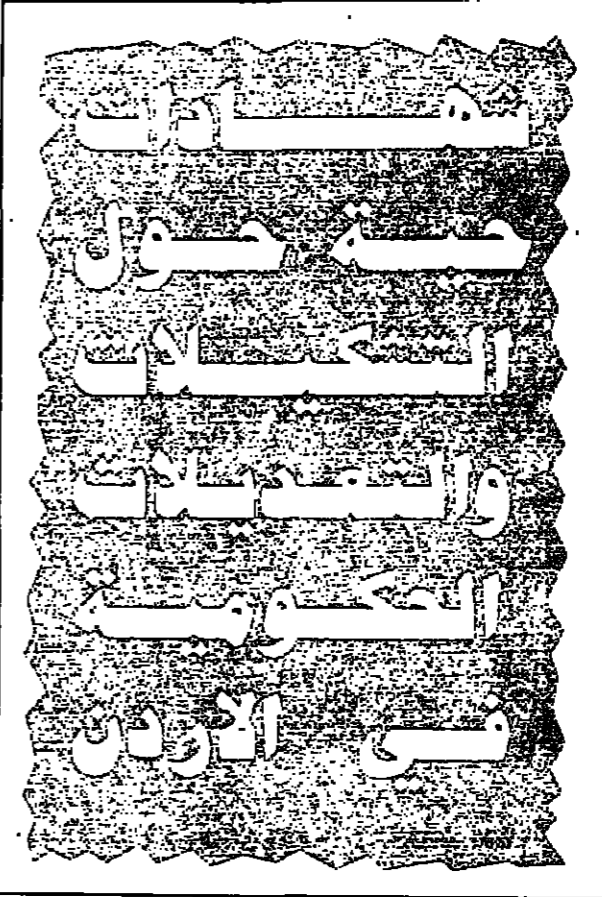 شهادات
حية حول
التشكيلات
والتعديلات
الحكومية
في الاردن